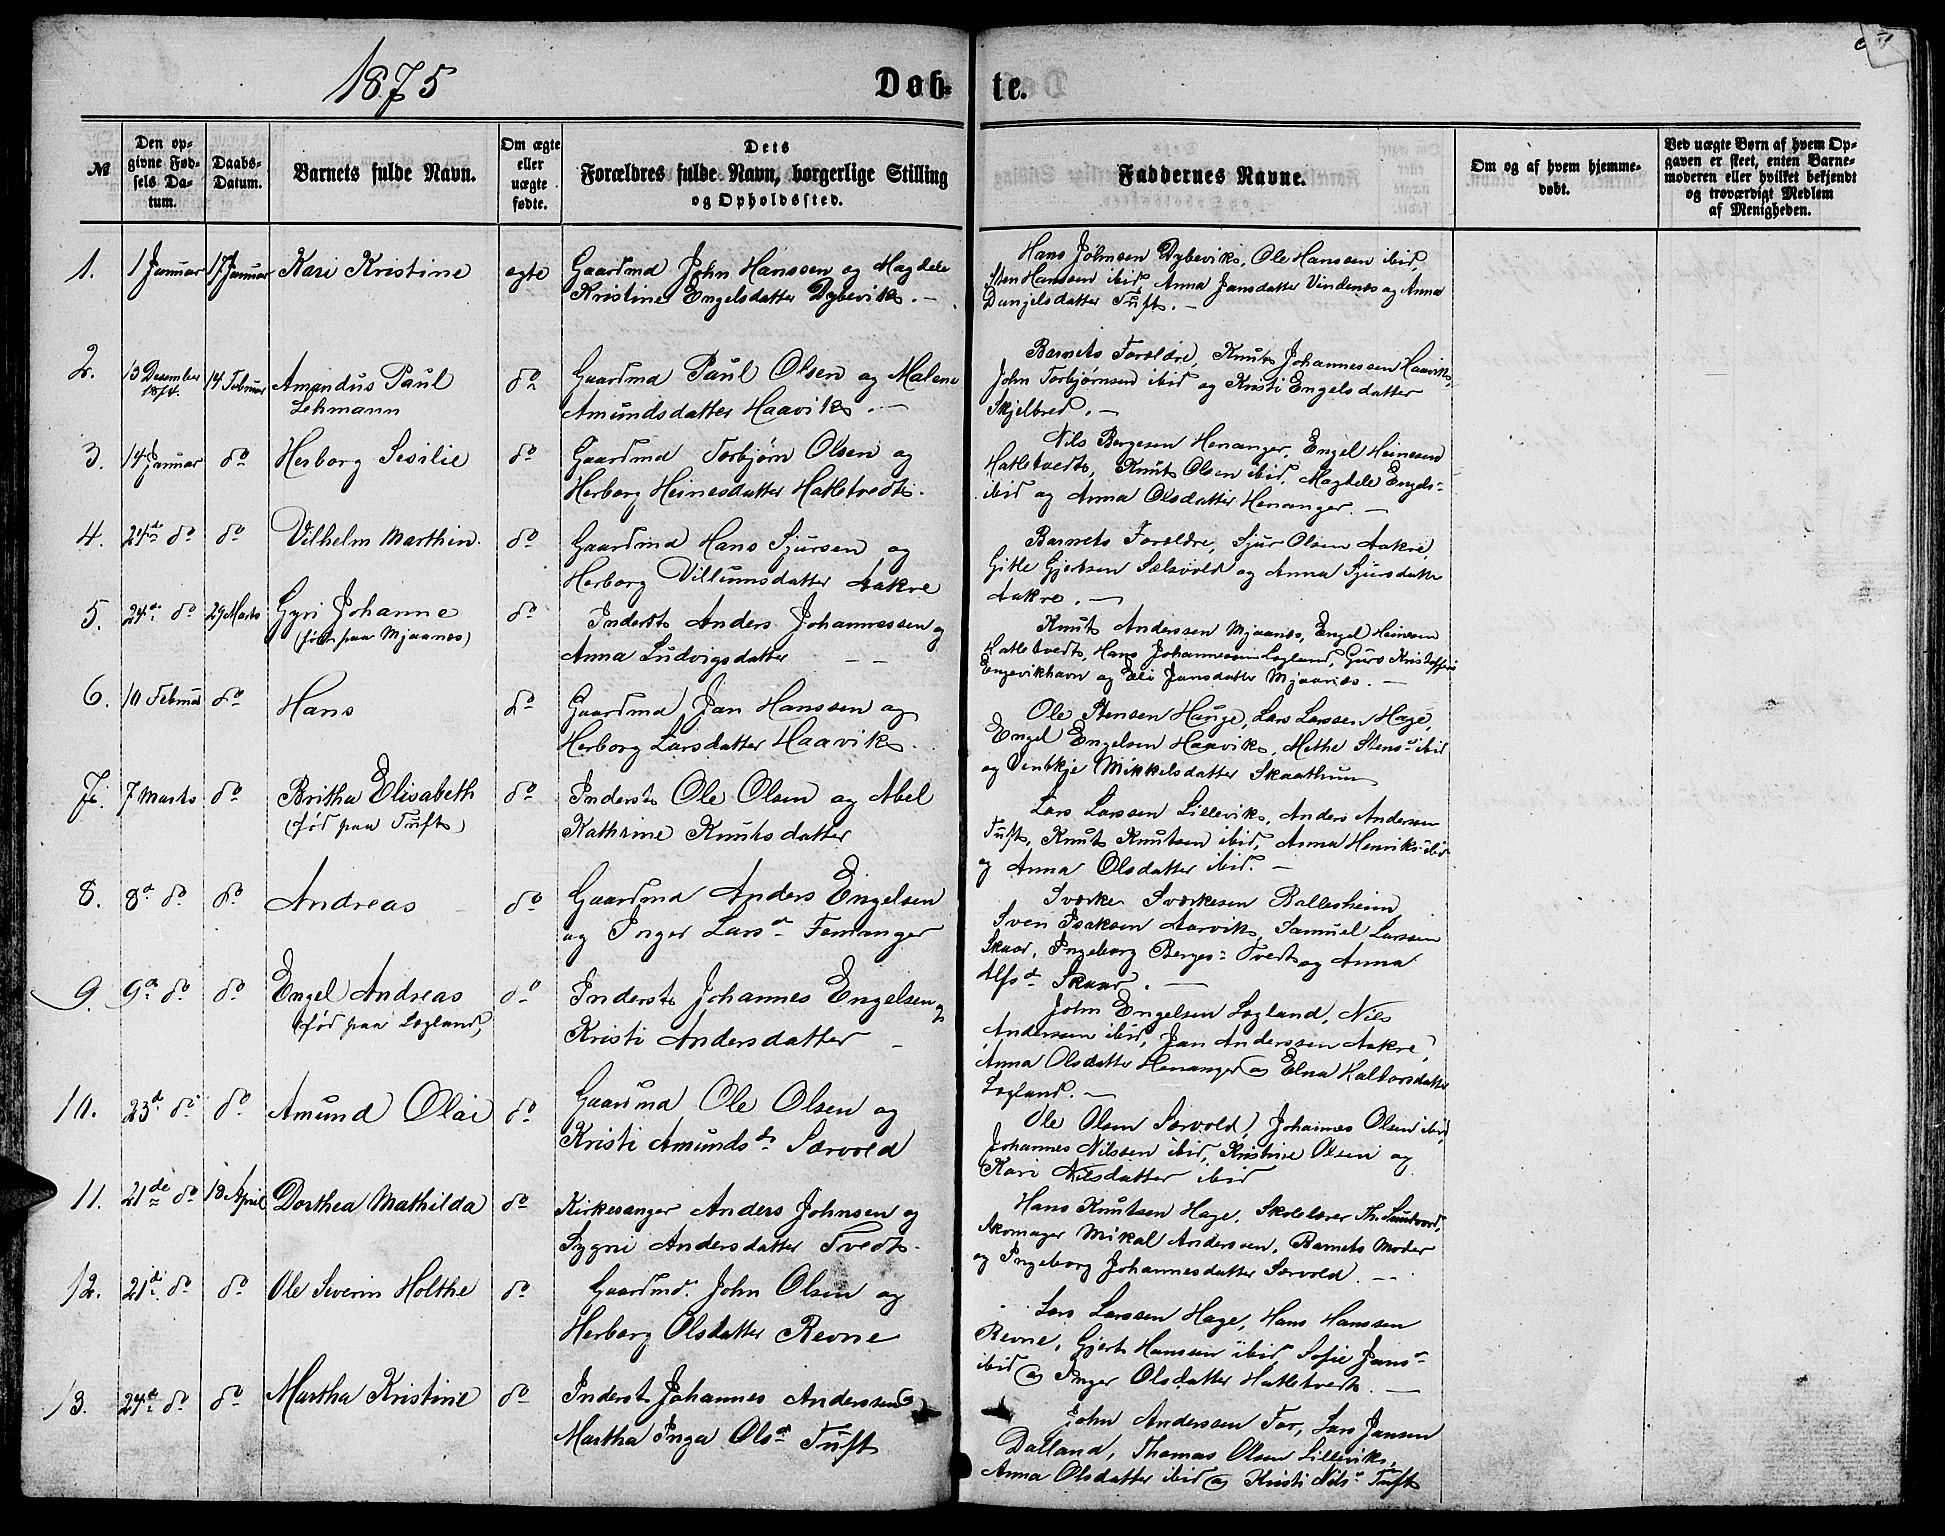 1875
Døb-te.
№
Den op-
givne Fød-
sels Da-
tum.
Daabs-
Datum.
Barnets fulde Navn.
Om ægte
eller
uægte
fødte.
Dets
Forældres fulde Navn, borgerlige Stilling
og Opholdssted.
Faddernes Navne.
Om og af hvem hjemme-
døbt.
Ved uægte Børn af hvem Op-
gaven er skeet, enten Barne-
moderen eller hvilket bekjendt
og troværdigt Medlem
af Menigheden.
1.
1 Januar
17 Januar
Kari Kristine
ægte
Gaardmd John Hanssen og Magdele
Kristine Engelsdatter Dybevik. —
Hans Johnsen Dybevik, Ole Hanssen ibid,
Sten Hanssen ibid, Anna Jansdatter Vindenes og Anna
Danjelsdatter Tuft. —
2.
13 Desember
1874.
14 Februar
Amandus Paul
Lehmann
do
Gaardmd Paul Olsen og Malene
Amundsdatter Haavik. —
Barnets Forældre, Knut Johannessen Haavik,
John Torbjørnsen ibid og Kristi Engelsdatter
Skjelbred. —
3.
14 Januar
do
Herborg Sesilie
do
Gaardmd Torbjørn Olsen og
Herborg Heinesdatter Hatletvedt.
Nils Børgesen Henanger, Engel Heinesen
Hatletvedt, Knut Olsen ibid, Magdele Engels-
ibid og Anna Olsdatter Henanger. —
4.
24de do
do
Vilhelm Marthin.
do
Gaardmd Hans Sjursen og
Herborg Villumsdatter Aakre
Barnets Forældre, Sjur Olsen Aakre,
Gitle Gjertsen Sælsvold og Anna Sjursdatter
Aakre. —
5.
24de do
29 Marts
Gyri Johanne
(født paa Mjaanes)
do
Inderst Anders Johannessen og
Anna Ludvigsdatter — —
Knut Anderssen Mjaanes, Engel Heinesen
Hatletvedt, Hans Johannessen Løgland, Guro Kristoffers
Engevikhavn og Eli Jansdatter Mjaanes. —
6.
10 Februar
do
Hans
do
Gaardmd Jan Hanssen og
Herborg Larsdatter Haavik.
Ole Stensen Hauge, Lars Larssen Hage,
Engel Engelsen Haavik, Methe Stensd ibid
og Ventkje Mikkelsdatter Skaathun
7.
7 Marts
do
Britha Elisabeth
(fød paa Tuft)
do
Inderst Ole Olsen og Abel
Kathrine Knutsdatter
Lars Larssen Lillevik, Anders Andersen
Tuft, Knut Knutsen ibid, Anna Henriks- ibid
og Anna Olsdatter ibid. —
8.
8d do
do
Andreas
do
Gaardmd Anders Engelsen
og Inger Larsd Femanger
Sværke Sværkesen Ballesheim
Sven Isaksen Aarvik, Samuel Larssen
Skaar, Ingeborg Berges- Tvedt og Anna
Alfsd Skaar. —
9.
9d do
do
Engel Andreas
(fød paa Løgland)
do
Inderst Johannes Engelsen og
Kristi Andersdatter —
John Engelsen Løgland, Nils
Anderssen ibid, Jan Anderssen Aakre,
Anna Olsdatter Henanger og Elna Haldorsdatter
Løgland. —
10.
23d do
do
Amund Olai
do
Gaardmd Ole Olsen og
Kristi Amundsdr Særvold
Ole Olsen Særvold, Johannes Olsen ibid,
Johannes Nilssen ibid, Kristine Olsen og
Kari Nilsdatter ibid
11.
21de do
18 April
Dorthea Mathilda
do
Kirkesanger Anders Johnsen og
Sygni Andersdatter Tvedt.
Hans Knutsen Hage, Skolelærer Th. Sundvord,
Skomager Mikal Anderssen, Barnets Moder
og Ingeborg Johannesdatter Særvold. —
12.
21de do
do
Ole Severin Holthe
do
Gaardmd. John Olsen og
Herborg Olsdatter Revne
Lars Larssen Hage, Hans Hanssen
Revne, Gjert Hanssen ibid, Sofie Jansd
ibid og Inger Olsdatter Hatletvedt. —
13.
24d do
do
Martha Kristine
do
Inderst Johannes Anderssen og
Martha Inga Olsd Tuft
John Anderssen Tor, Lars Jansen
Dalland, Thomas Olsen Lillevik,
Anna Olsdatter ibid og Kristi Nilsd Tuft